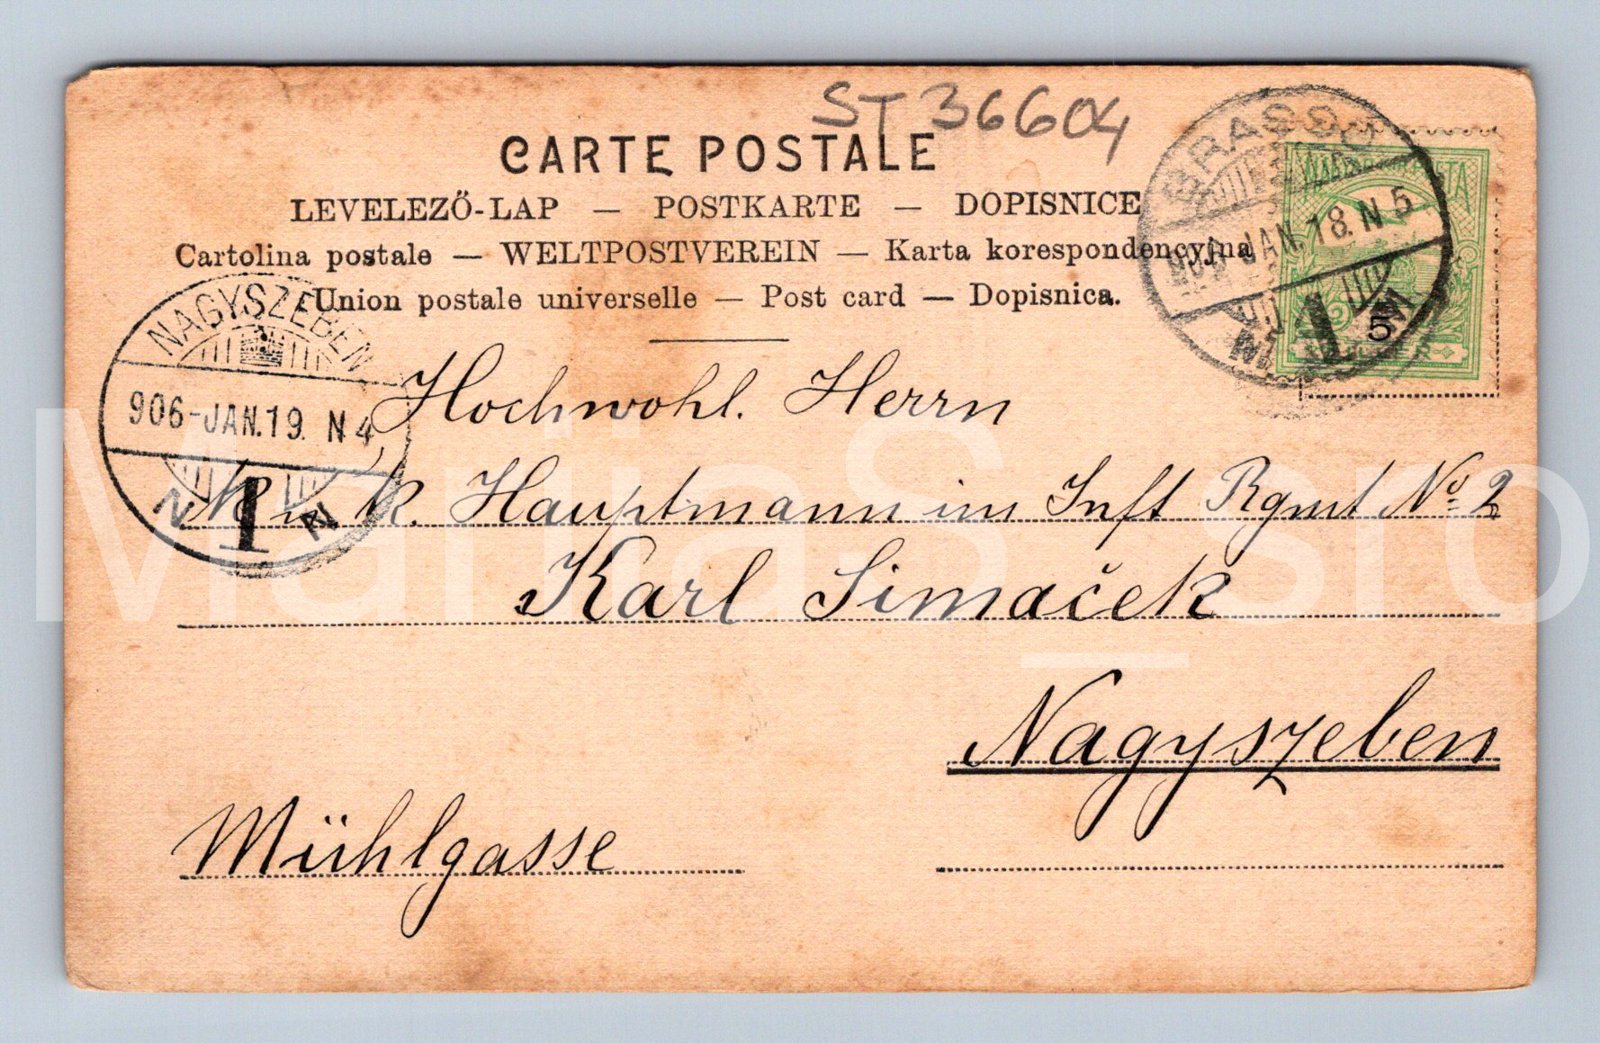 ST 36604
CARTE POSTALE
LEVELEZŐ-LAP — POSTKARTE — DOPISNICE
Cartolina postale — WELTPOSTVEREIN — Karta korespondencyjna
Union postale universelle — Post card — Dopisnica.
BRASSÓ
906 JAN. 18. N 5
1
5
NAGYSZEBEN
906-JAN.19. N 4
N 1 N
Hochwohl. Herrn
k u k. Hauptmann im Inft Rgmt No 2
Karl Simaček
Nagyszeben
Mühlgasse
MarijaS_sro